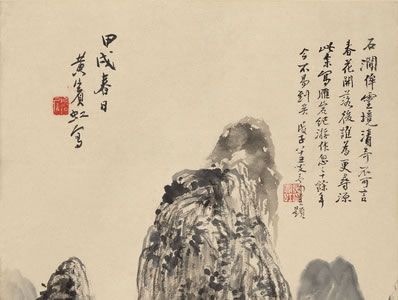 石澗俾靈境清奇不可言
春花開落後誰為更尋源
此余寫雁宕紀游作忽忽十餘年
今不易到矣 戊子 八十五叟 賓虹題
甲戌春日
黃賓虹寫